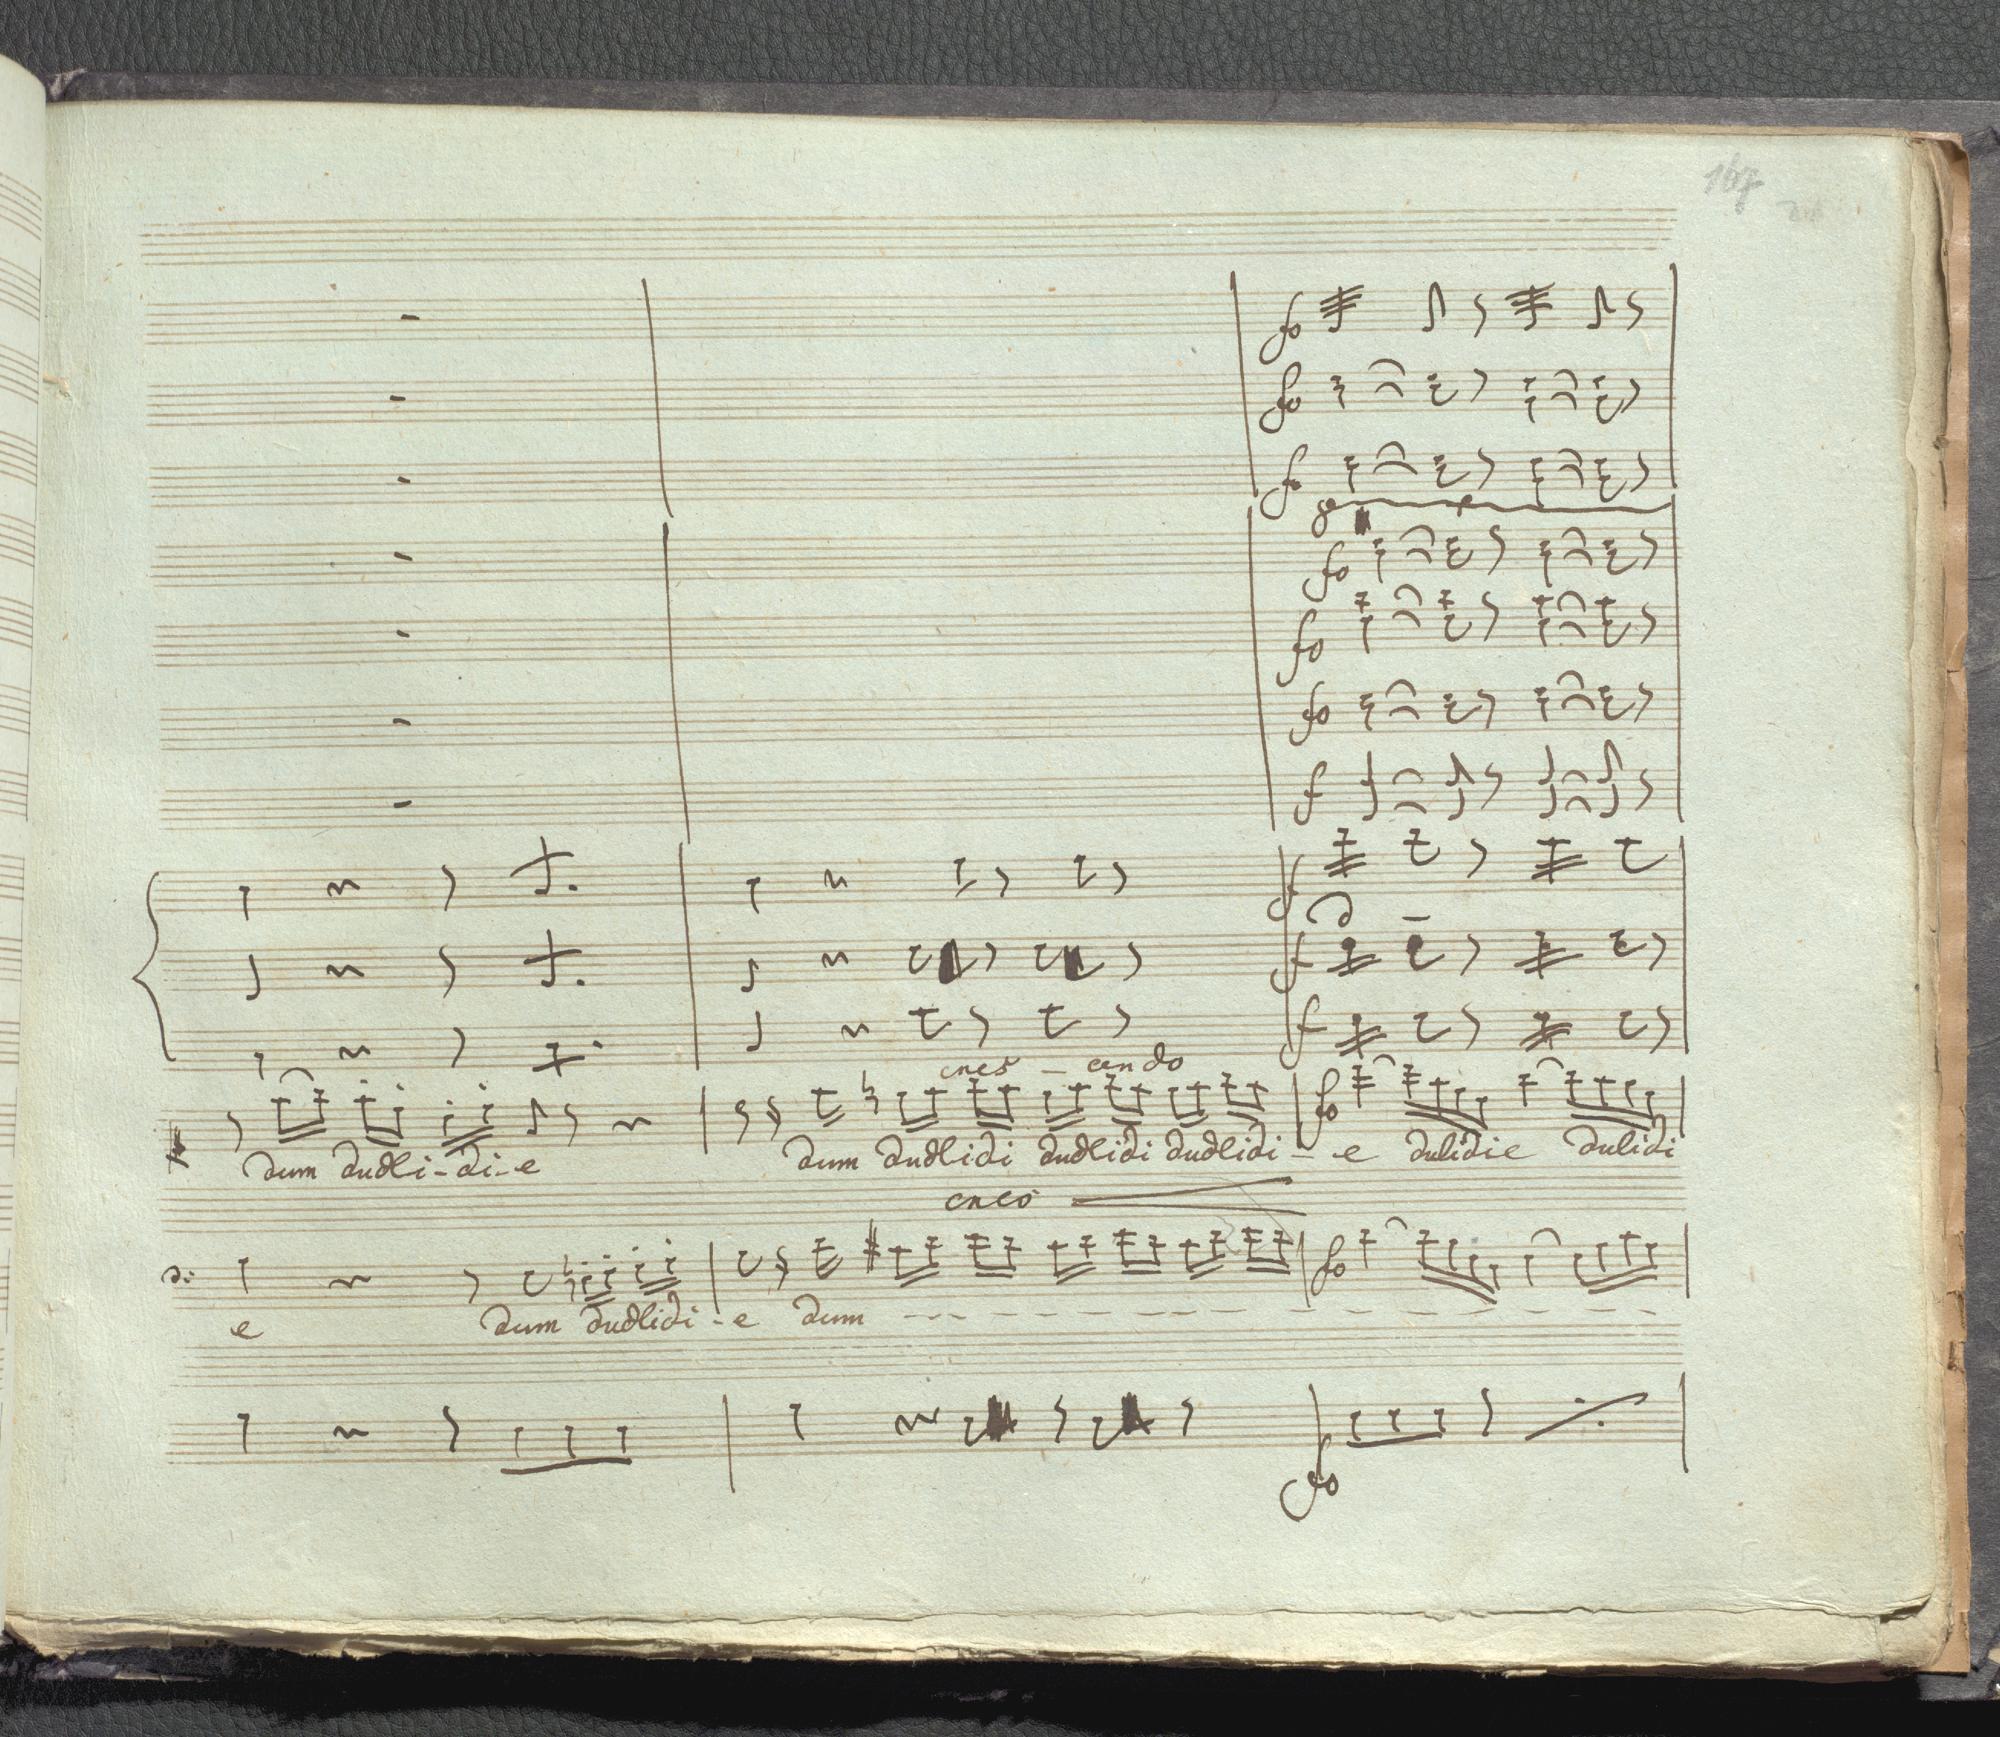 167
fo
fo
fo
fo
fo
fo
f
f
f
f
cres - cendo
fo
dum dudli-di-e dum dudlidi dudlidi dudlidi - e dulidie dulidi
cres
fo
e dum dudlidi-e dum
fo